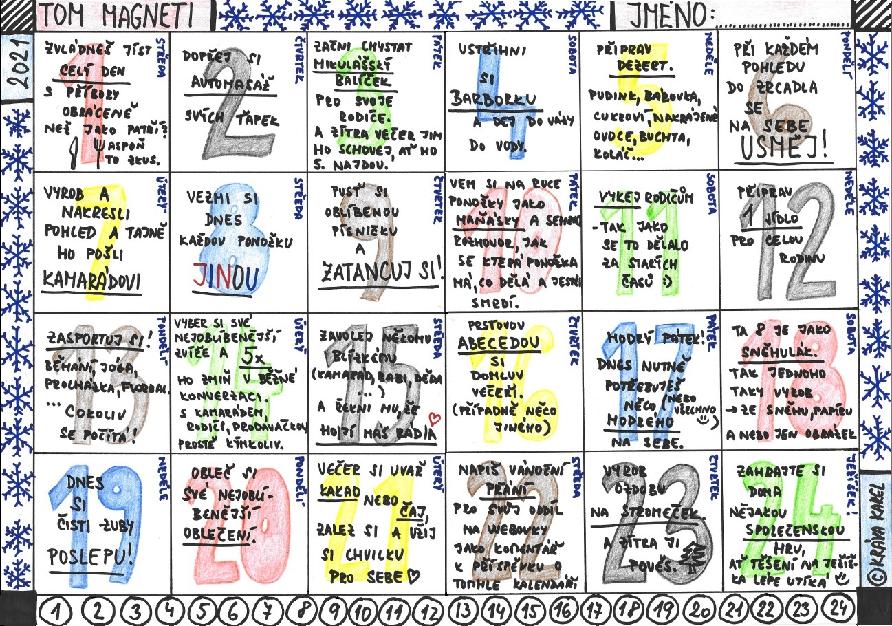 TOM MAGNETI
JMENO:
2021
STŘEDA
ZVLÁDNEŠ JÍST
CELÝ DEN
S PŘÍBORY
OBRÁCENĚ
NEŽ JAKO PATŘÍ?
ASPOŇ
TO ZKUS.
1
ČTVRTEK
DOPŘEJ SI
AUTOMASÁŽ
SVÝCH TAPEK
2
PÁTEK
ZAČNI CHYSTAT
MIKULÁŠSKÝ
BALÍČEK
PRO SVOJE
RODIČE.
A ZÍTRA VEČER JIM
HO SCHOVEJ, AŤ HO
S. NAJDOU.
SOBOTA
USTŘIHNI
SI
BARBORKU
A DEJ DO VÁZY
DO VODY.
4
NEDĚLE
PŘIPRAV
DEZERT.
PUDINK, BÁBOVKA,
CUKROVÍ, NAKRÁJENÉ
OVOCE, BUCHTA,
KOLÁČ...
5
PONDĚLÍ
PŘI KAŽDÉM
POHLEDU
DO ZRCADLA
SE
NA SEBE
USMĚJ!
6
ÚTERÝ
VYROB A
NAKRESLI
POHLED A TAJNĚ
HO POŠLI
KAMARÁDOVI
7
STŘEDA
VEZMI SI
DNES
KAŽDOU PONOŽKU
JINOU
8
ČTVRTEK
PUSŤ SI
OBLÍBENOU
PÍSNIČKU
A
ZATANCUJ SI!
9
PÁTEK
VEM SI NA RUCE
PONOŽKY JAKO
MAŇÁSKY A SEHRAJ
ROZHOVOR, JAK
SE KTERÁ PONOŽKA
MÁ, CO DĚLÁ A JESTLI
SMRDÍ.
10
SOBOTA
VYKEJ RODIČŮM
-TAK JAKO
SE TO DĚLALO
ZA STARÝCH
ČASŮ :)
11
NEDĚLE
PŘIPRAV
1 JÍDLO
PRO CELOU
RODINU
12
PONDĚLÍ
ZASPORTUJ SI!
BĚHÁNÍ, JÓGA,
PROCHÁZKA, FLORBAL
... COKOLIV
SE POČÍTÁ!
13
ÚTERÝ
VYBER SI SVÉ
NEJOBLÍBENĚJŠÍ
ZVÍŘE A 5x
HO ZMIŇ V BĚŽNÉ
KONVERZACI.
S KAMARÁDEM,
RODIČI, PRODAVAČKOU
PROSTĚ KÝMKOLIV.
14
STŘEDA
ZAVOLEJ NĚKOMU
BLÍZKÉMU
(KAMARÁD, BABI, DĚDA
...)
A ŘEKNI MU, ŽE
HO/JI MÁŠ RÁD/A
15
ČTVRTEK
PRSTOVOU
ABECEDOU
SI
DOMLUV
VEČEŘI.
(PŘÍPADNĚ NĚCO
JINÉHO)
16
PÁTEK
MODRÝ PÁTEK!
DNES NUTNĚ
POTŘEBUJEŠ
NĚCO (NEBO
VŠECHNO)
MODRÉHO
NA SEBE.
17
SOBOTA
TA 8 JE JAKO
SNĚHULÁK.
TAK JEDNOHO
TAKY VYROB
→ ZE SNĚHU, PAPÍRU
A NEBO JEN OBRÁZEK
18
NEDĚLE
DNES
SI
ČISTI ZUBY
POSLEPU!
19
PONDĚLÍ
OBLEČ SI
SVÉ NEJOBLÍ-
BENĚJŠÍ
OBLEČENÍ.
20
ÚTERÝ
VEČER SI UVAŘ
KAKAO NEBO
ČAJ,
ZALEZ SI A UŽIJ
SI CHVILKU
PRO SEBE
21
STŘEDA
NAPIŠ VÁNOČNÍ
PŘÁNÍ
PRO SVŮJ ODDÍL
NA WEBOVKY
JAKO KOMENTÁŘ
K PŘÍSPĚVKU O
TOMHLE KALENDÁŘI
22
ČTVRTEK
VYROB
OZDOBU
NA STROMEČEK
A ZÍTRA JI
POVĚS.
23
JEŽÍŠEK!
ZAHRAJTE SI
DOMA
NĚJAKOU
SPOLEČENSKOU
HRU,
AŤ TĚŠENÍ NA JEŽÍŠ-
KA LÉPE UTÍKÁ
24
© KRÁVA KAREL
1 2 3 4 5 6 7 8 9 10 11 12 13 14 15 16 17 18 19 20 21 22 23 24